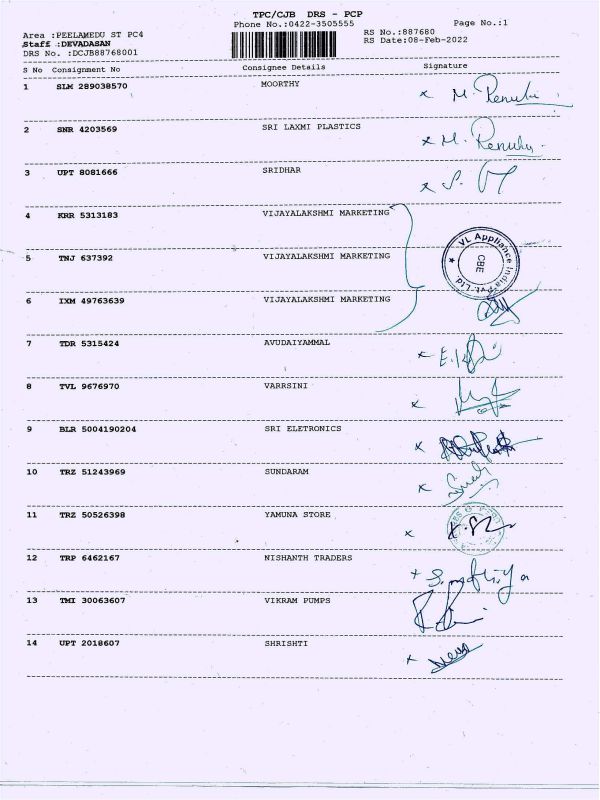 TPC/CJB DRS - PCP
Phone No.:0422-3505555 Page No.:1
Area :PEELAMEDU ST PC4 RS No.:887680
Staff :DEVADASAN RS Date:08-Feb-2022
DRS No. :DCJB88768001
S No Consignment No Consignee Details Signature
1 SLM 289038570 MOORTHY x M. Renuka
2 SNR 4203569 SRI LAXMI PLASTICS x M. Renuka
3 UPT 8081666 SRIDHAR x S.
4 KRR 5313183 VIJAYALAKSHMI MARKETING
5 TNJ 637392 VIJAYALAKSHMI MARKETING
VL Appliance India Pvt. Ltd. ★
CBE
6 IXM 49763639 VIJAYALAKSHMI MARKETING
7 TDR 5315424 AVUDAIYAMMAL x
8 TVL 9676970 VARRSINI x
9 BLR 5004190204 SRI ELETRONICS x
10 TRZ 51243969 SUNDARAM x
11 TRZ 50526398 YAMUNA STORE x
12 TRP 6462167 NISHANTH TRADERS x
13 TMI 30063607 VIKRAM PUMPS
14 UPT 2018607 SHRISHTI x